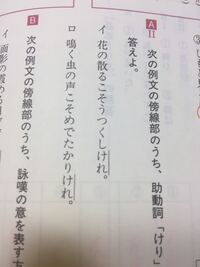 A II 次の例文の傍線部のうち、助動詞「けり」
答えよ。
イ 花の散るこそうつくしけれ。
ロ 鳴く虫の声こそめでたかりけれ。
B 次の例文の傍線部のうち、詠嘆の意を表す方